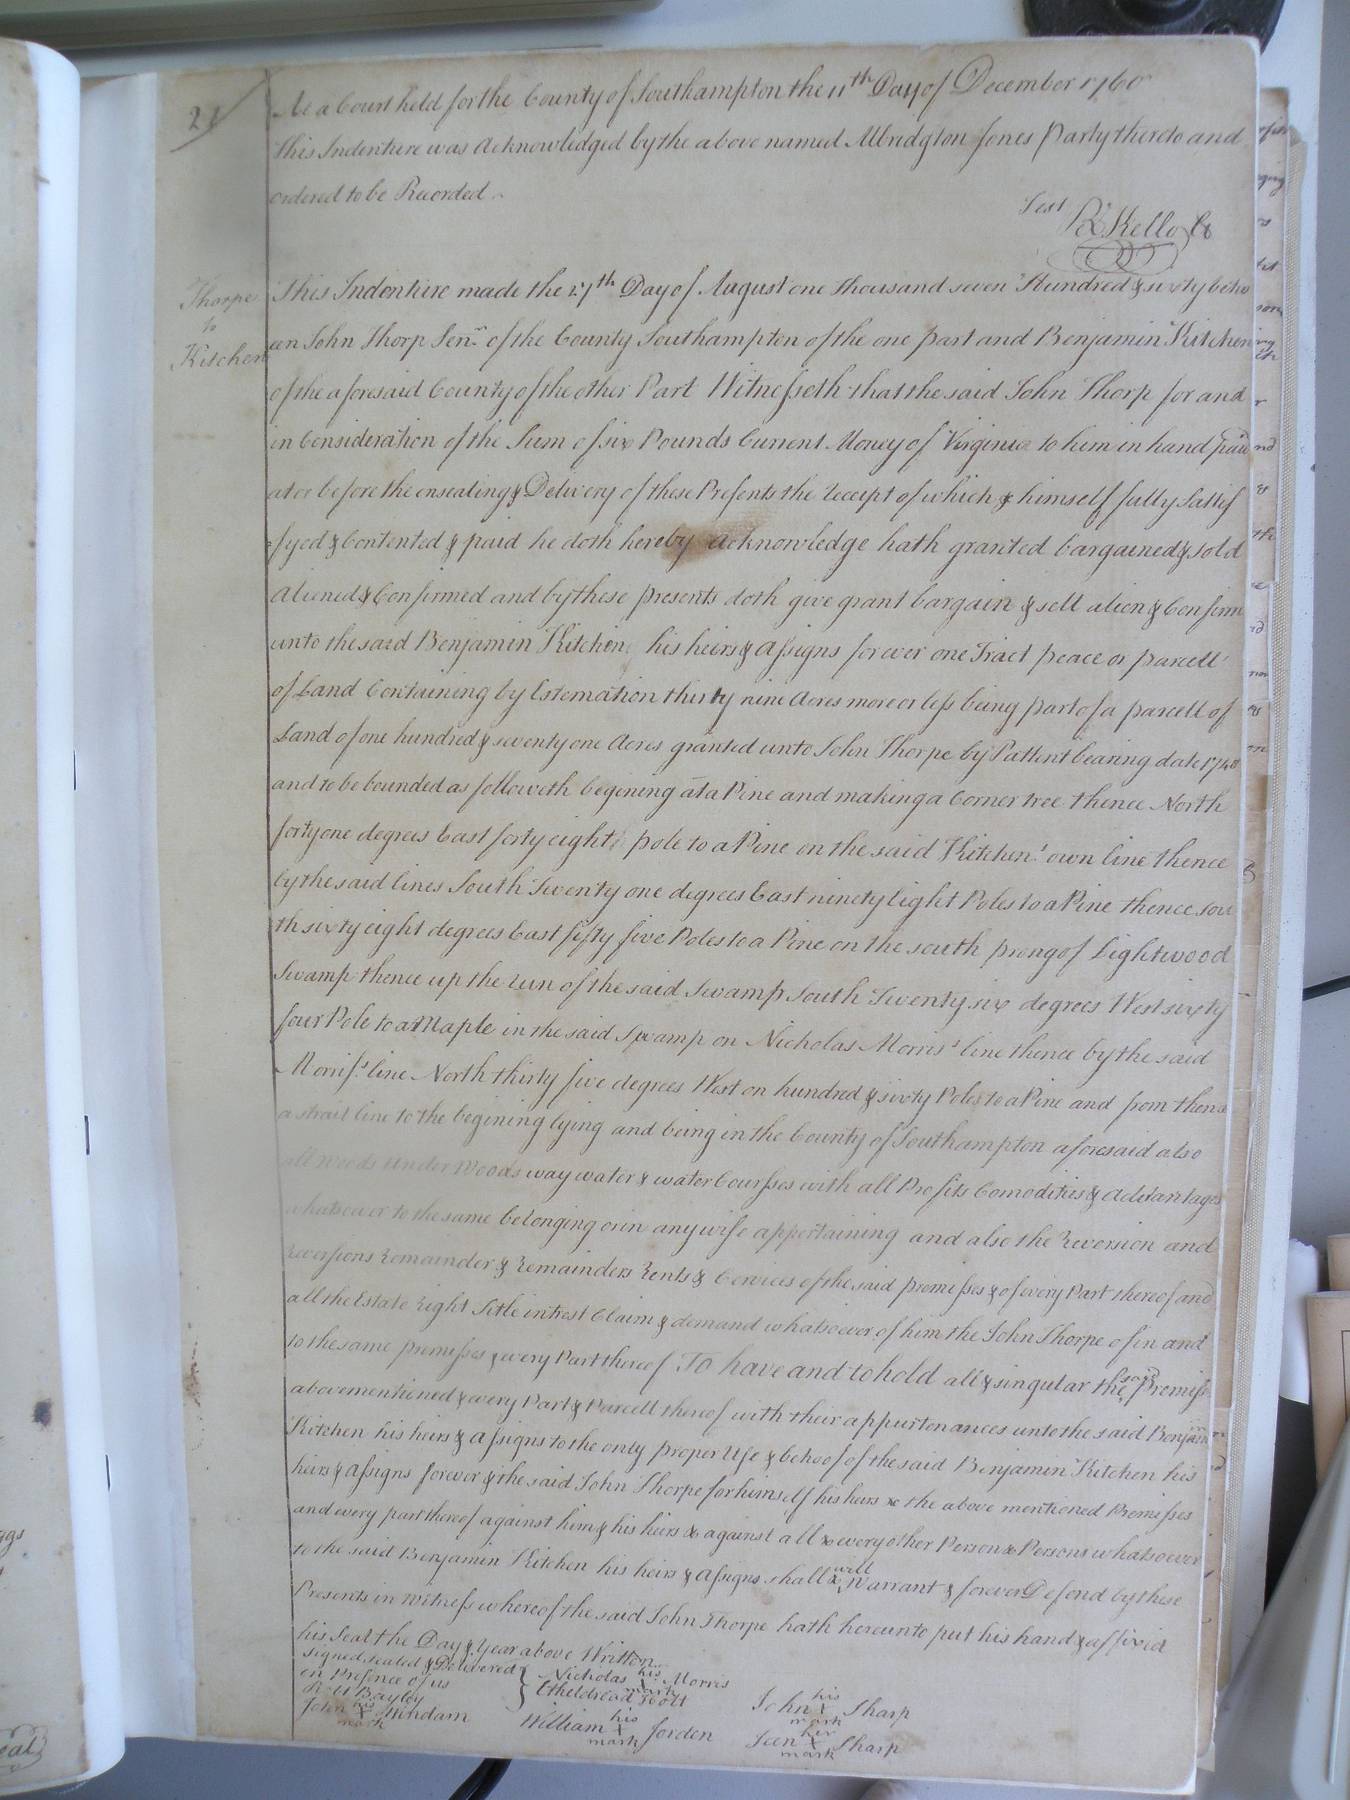 21
At a Court held for the County of Southampton the 11th Day of December 1760
This Indenture was Acknowledged by the above named Albridgton Jones Party thereto and
ordered to be Recorded
Test Rd Kello Cr
Thorpe
to
Kitchen
This Indenture made the 27th Day of August one thousand seven Hundred & sixty betw
een John Thorp Senr of the County Southampton of the one part and Benjamin Kitchen
of the aforesaid County of the other Part Witnesseth that the said John Thorp for and
in Consideration of the Sum of six Pounds Current Money of Virginia to him in hand paid
at or before the ensealing & Delivery of these Presents the receipt of which & himself fully Sattif
=fyed & Contented & paid he doth hereby acknowledge hath granted bargained & sold
aliened & Confirmed and by these presents doth give grant bargain & sell alien & Confirm
unto the said Benjamin Kitchen his heirs & assigns forever one Tract peace or parcell
of Land Containing by Estemation thirty nine Acres more or less being part of a parcell of
Land of one hundred & seventy one Acres granted unto John Thorpe by Pattent bearing date
and to be bounded as followeth begining at a Pine and making a Corner tree thence North
forty one degrees East forty eight pole to a Pine on the said Kitchen's own line thence
by the said lines South Twenty one degrees East ninety Eight Poles to a Pine thence sou
th sixty eight degrees East fifty five Poles to a Pine on the south prong of Lightwood
Swamp thence up the run of the said Swamp South Twenty six degrees West sixty
four Pole to a Maple in the said Swamp on Nicholas Morris's line thence by the said
Morris's line North thirty five degrees West on hundred & sixty Poles to a Pine and from thence
a strait line to the begining lying and being in the County of Southampton aforesaid also
all woods under Woods way water & water Coursses with all Profits Comodities & advantages
whatsoever to the same belonging or in any wise appertaining and also the Reversion and
Reversions Remainder & Remainders Rents & Cervices of the said premisses & of every Part thereof and
all the Estate Right Title intrest Claim & demand whatsoever of him the John Thorpe of in and
to the same premisses & every Part thereof To have and to hold all & singular the said Premiss
abovementioned & every Part & Parcell thereof with their appurtenances unto the said Benjamin
Kitchen his heirs & assigns to the only proper Use & behoof of the said Benjamin Kitchen his
heirs & assigns forever & the said John Thorpe for himself his heirs & the above mentioned Premisses
and every part thereof against him & his heirs & against all & every other Person & Persons whatsoever
to the said Benjamin Kitchen his heirs & assigns shall & will Warrant & forever Defend by these
Presents in Witness whereof the said John Thorpe hath hereunto put his hand & affixed
his Seal the Day & Year above Written
signed sealed & Delivered
in Presence of us
Nicholas his mark Morris
Etheldread Holt
John his X mark Windam
William his X mark Jorden
John his X mark Tharp
her X mark Tharp